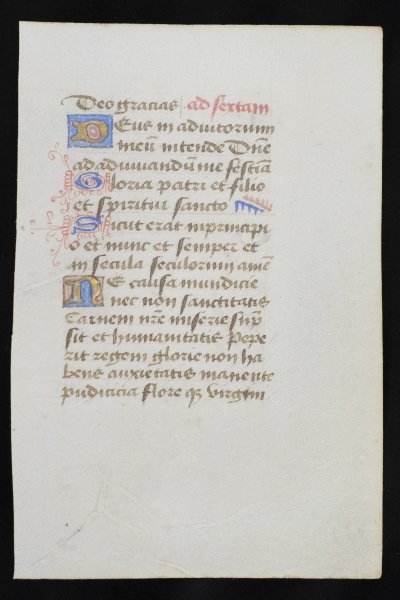 Deo gracias ad sextam
Deus in adiutorium
meū intende Dne
ad adiuvandū me festiā
Gloria patri et filio
et spiritui sancto
Sicut erat in principi
o et nunc et semper et
in secula seculorum amē
E causa mundicie
nec non sanctitatis
Carnem nr̄e miserie sūp
sit et humanitatis Pepe
rit regem glorie non ha
bens anxietatis manente
pudicicia flore qz virgini